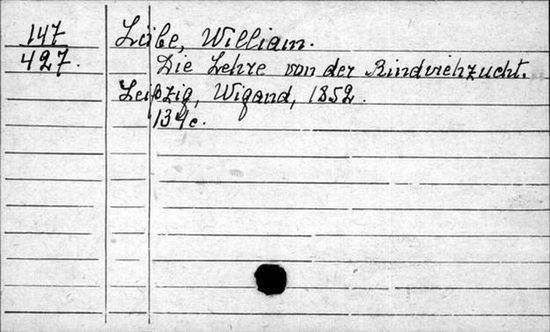 147
427.
Löbe, William.
Die Lehre von der Rindviehzucht.
Leipzig, Wigand, 1852.
134c.